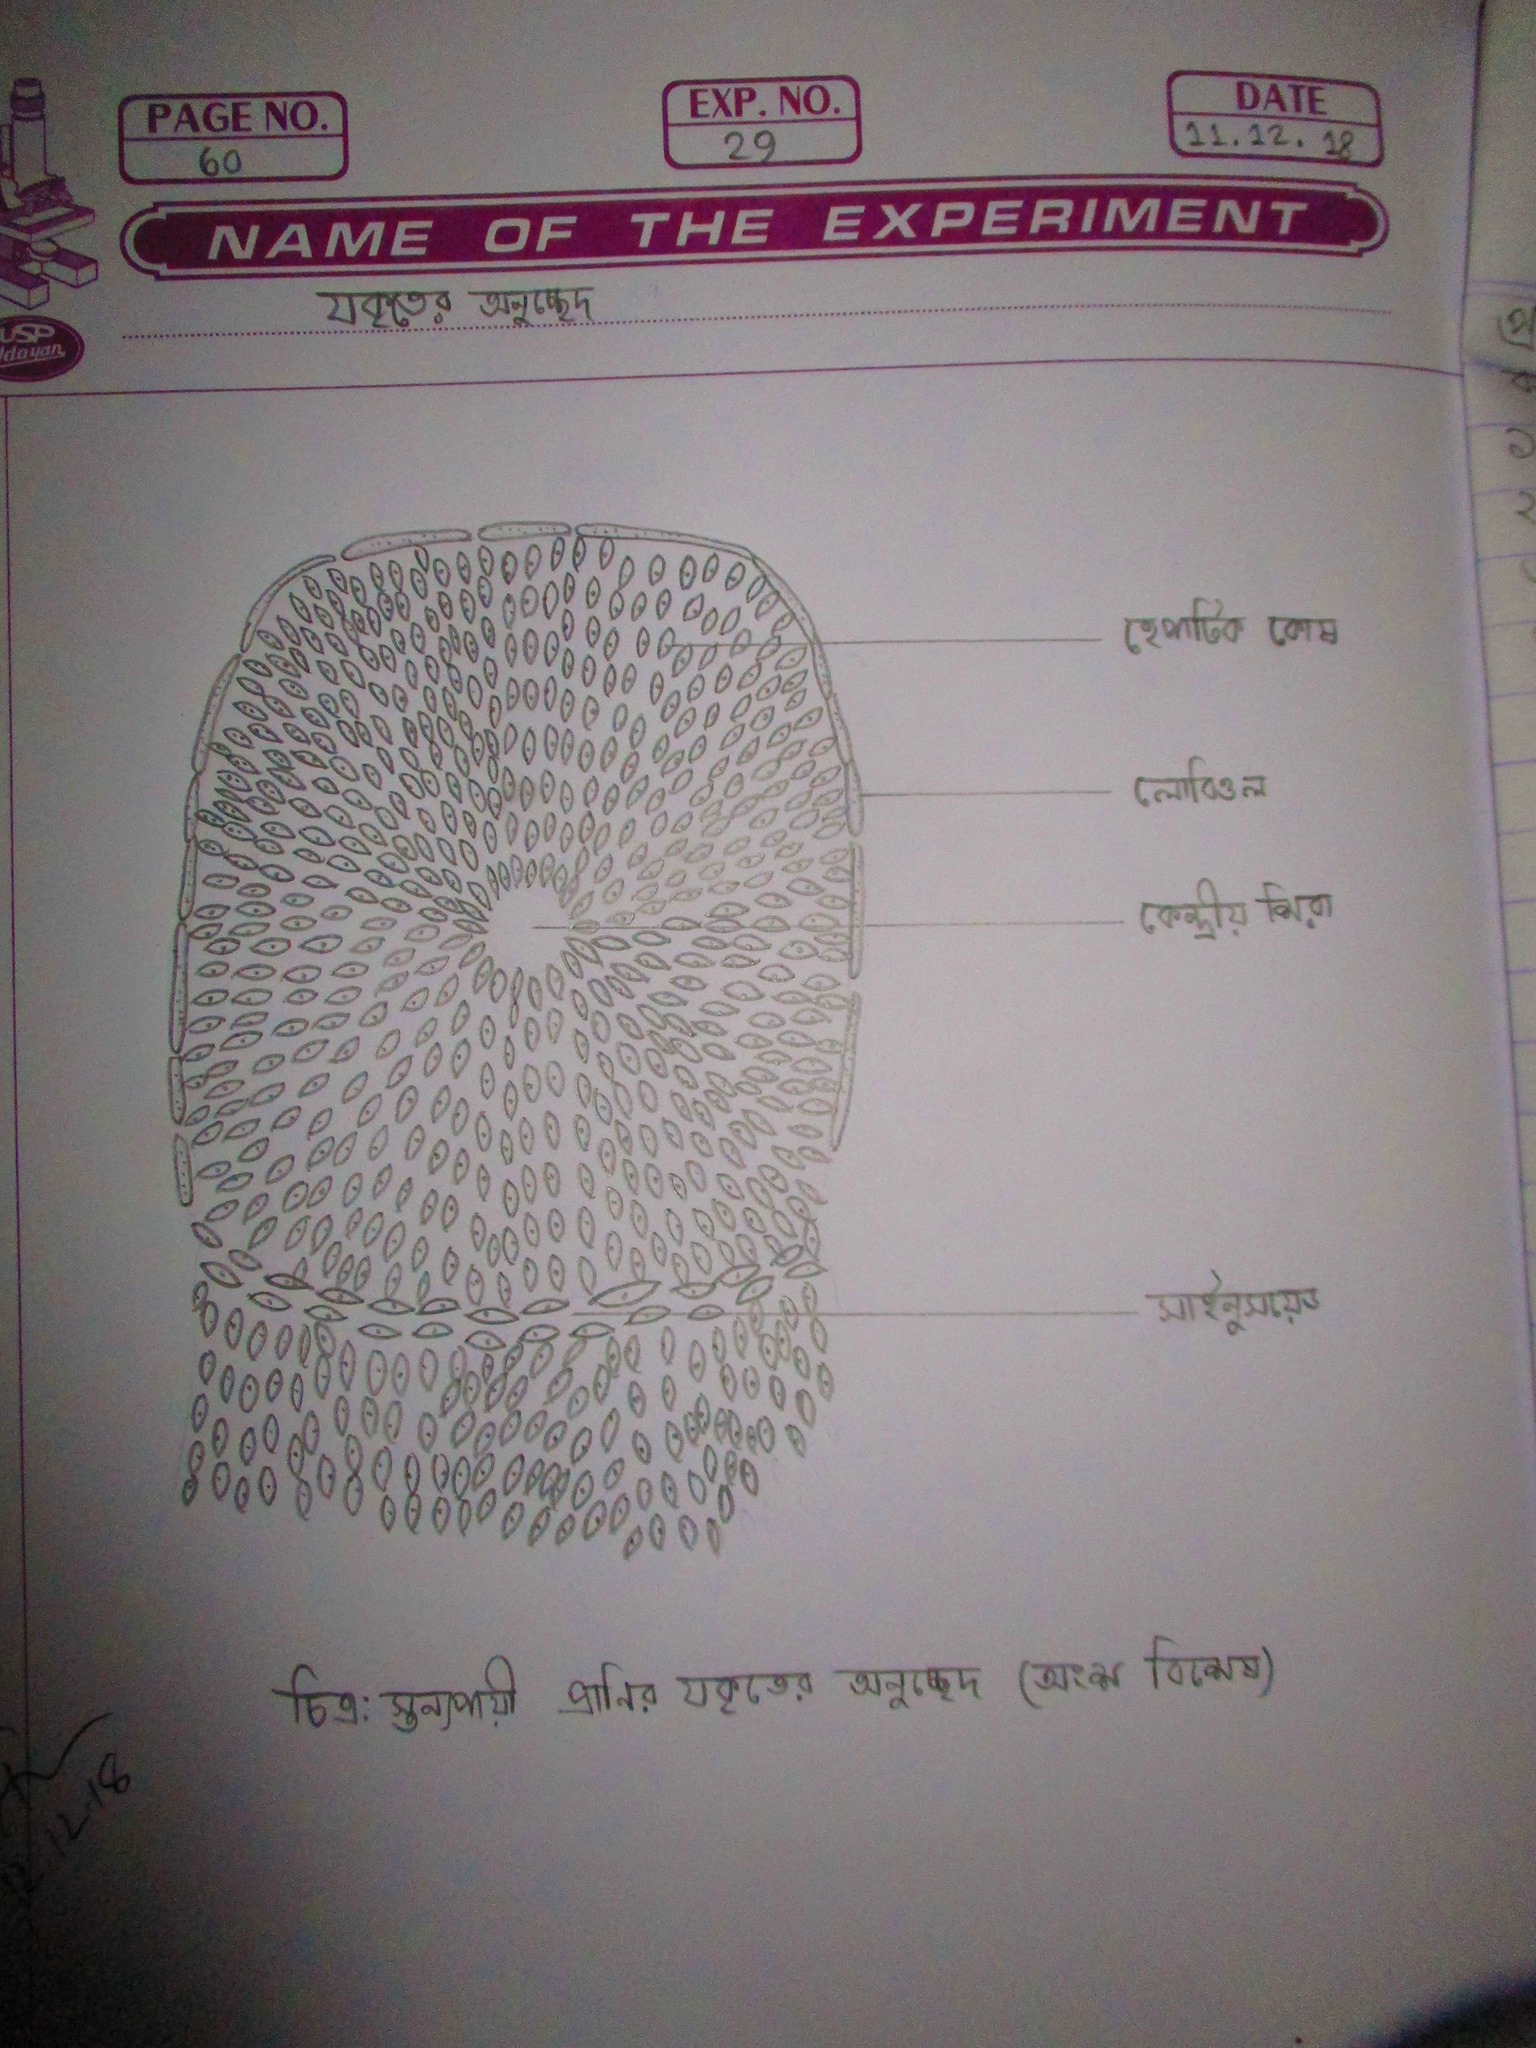 PAGE NO.
60
EXP. NO.
29
DATE
11.12.18
NAME OF THE EXPERIMENT
যকৃতের অনুচ্ছেদ
USP
হেপাটিক কোষ
লোবিওল
কেন্দ্রীয় শিরা
সাইনুসয়েড
চিত্র: স্তন্যপায়ী প্রানির যকৃতের অনুচ্ছেদ (অংশ বিশেষ)
12.18